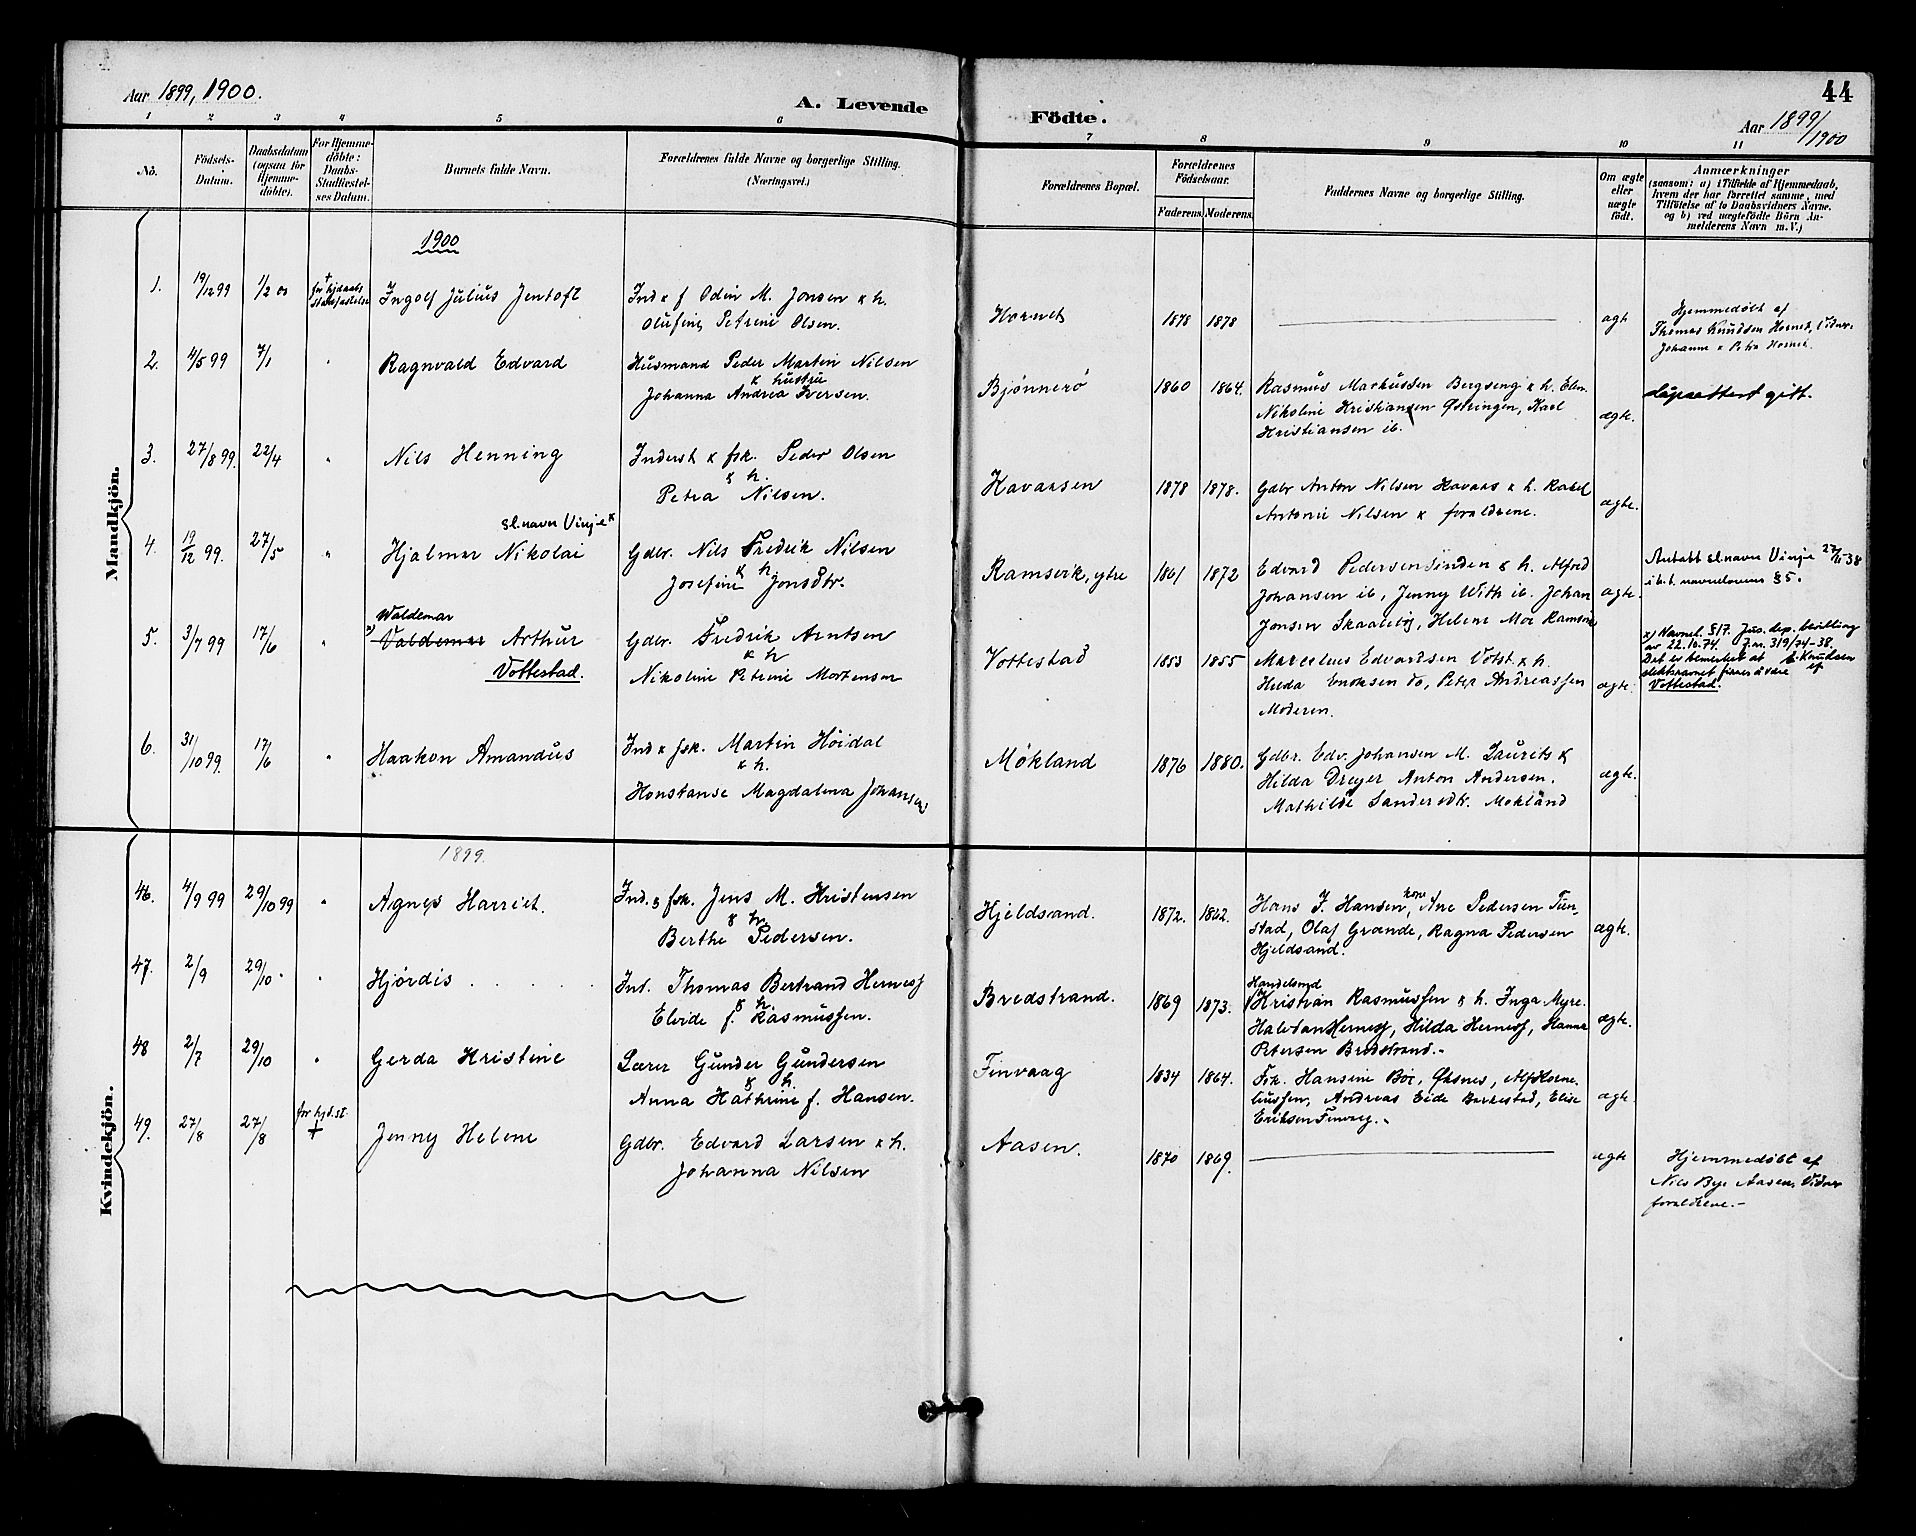 Aar 1899, 1900.
A. Levende
Födte.
44
Aar 1899/1900
1 2 3 4 5 6 7 8 9 10 11
No.
Födsels-
Datum.
Daabsdatum
(ogsaa for
Hjemme-
döbte).
For Hjemme-
döbte:
Daabs-
Stadfæstel-
ses Datum.
Barnets fulde Navn.
Forældrenes fulde Navne og borgerlige Stilling.
(Næringsvei.)
Forældrenes Bopæl.
Forældrenes
Födselsaar.
Faderens. Moderens.
Faddernes Navne og borgerlige Stilling.
Om ægte
eller
uægte
födt.
Anmærkninger
(saasom: a) i Tilfælde af Hjemmedaab,
hvem der har forrettet samme, med
Tilföielse af to Daabsvidners Navne,
og b) ved uægtefödte Börn An-
melderens Navn m. V.)
Mandkjön.
1900
1. 19/12 99 1/2 00 + før hjdaabs stadfæstelse Ingolf Julius Jentoft
Ind & f Odin M. Jensen & h.
Olufine Petrine Olsen.
Hornet 1878 1878 ægte
Hjemmedøbt af
Thomas Knudsen Hornet, Vidner
Johanne & Petra Hornet.
2. 4/5 99 7/1 " Ragnvald Edvard
Husmand Peder Martin Nilsen
& hustru
Johanna Andrea Iversen.
Bjønnerö 1860 1864.
Rasmus Markussen Bergseng & h. Elen
Nikoline Kristiansen Østringen, Karl
Kristiansen ib.
ægte.
dåpsattest gitt.
3. 27/8 99. 22/4 " Nils Henning
Inderst & fsk. Peder Olsen
& h.
Petra Nilsen.
Havaasen 1878 1878.
Gdbr Anton Nilsen Havaas & h. Rakel
Antonie Nilsen & forældrene.
ægte.
sl.navn Vinje x
4. 19/12 99. 27/5 " Hjalmar Nikolai
Gdbr. Nils Fredrik Nilsen
& h
Josefine Jonsdtr.
Ramsvik, ytre 1861 1872
Edvard Pedersen Sinden & h. Alfred
Johansen ib, Jenny With ib. Johan
Jonsen Skaalebö, Helene Moe Ramsvik
ægte.
Antatt sl.navn Vinje 27/5-38
i.h.t. navnelovens § 5.
Waldemar
5. 3/7 99 17/6 " x) Valdemar Arthur
Vottestad.
Gdbr. Fredrik Arntsen
& h
Nikoline Petrine Mortensen
Vottestad 1853 1855
Marcelius Edvardsen Votst. & h.
Hilda Enoksen do, Peter Andreassen
Moderen.
ægte.
x) Navnel. §17. Jus.dep. bevilling
av 22.10.74. J.nr. 319/74-38.
Det er bemerket at E. Knudsen
slektsnavnet finnes å være
Vottestad.
6. 31/10 99. 17/6 " Haakon Amandus
Ind & fsk. Martin Höidal
& h.
Konstanse Magdalena Johansen
Mökland 1876 1880.
Gdbr. Edv. Johansen M. Laurits &
Hilda Dreyer Anton Andersen.
Mathilde Sandersdtr. Mökland
ægte.
Kvindekjön.
1899.
46. 4/9 99 29/10 99 " Agnes Harriet.
Ind. & fsk. Jens M. Kristensen
& h.
Berthe Pedersen.
Hjeldsand. 1872. 1862.
Hans J. Hansen, kone Ane Pedersen Tun-
stad, Olaf Grande, Ragna Pedersen
Hjeldsand.
ægte.
47. 2/9 29/10. " Hjördis
Ind. Thomas Bertrand Herness
& h.
Elvide f. Rasmussen.
Bredstrand. 1869 1873.
Handelsmd
Kristian Rasmussen & h. Inga Myre.
Halvdan Herness, Hilda Herness, Hanna
Petersen Bredstrand.-
ægte.
48 2/7 29/10 " Gerda Kristine
Lærer Gunder Gundersen
& h.
Anna Kathrine f. Hansen.
Finvaag 1834 1864.
Fsk. Hansine Boe, Øksnes, Alf Korne-
liussen, Andreas Eide Barkestad, Elise
Eriksen Finvaag.-
ægte.
49. 27/8 27/8 før hjd.st. + Jenny Helene
Gdbr. Edvard Larsen & h.
Johanna Nilsen
Aasen. 1870 1869.
ægte
Hjemmedøbt af
Nils Bye Aasen, Vidner
forældrene.-